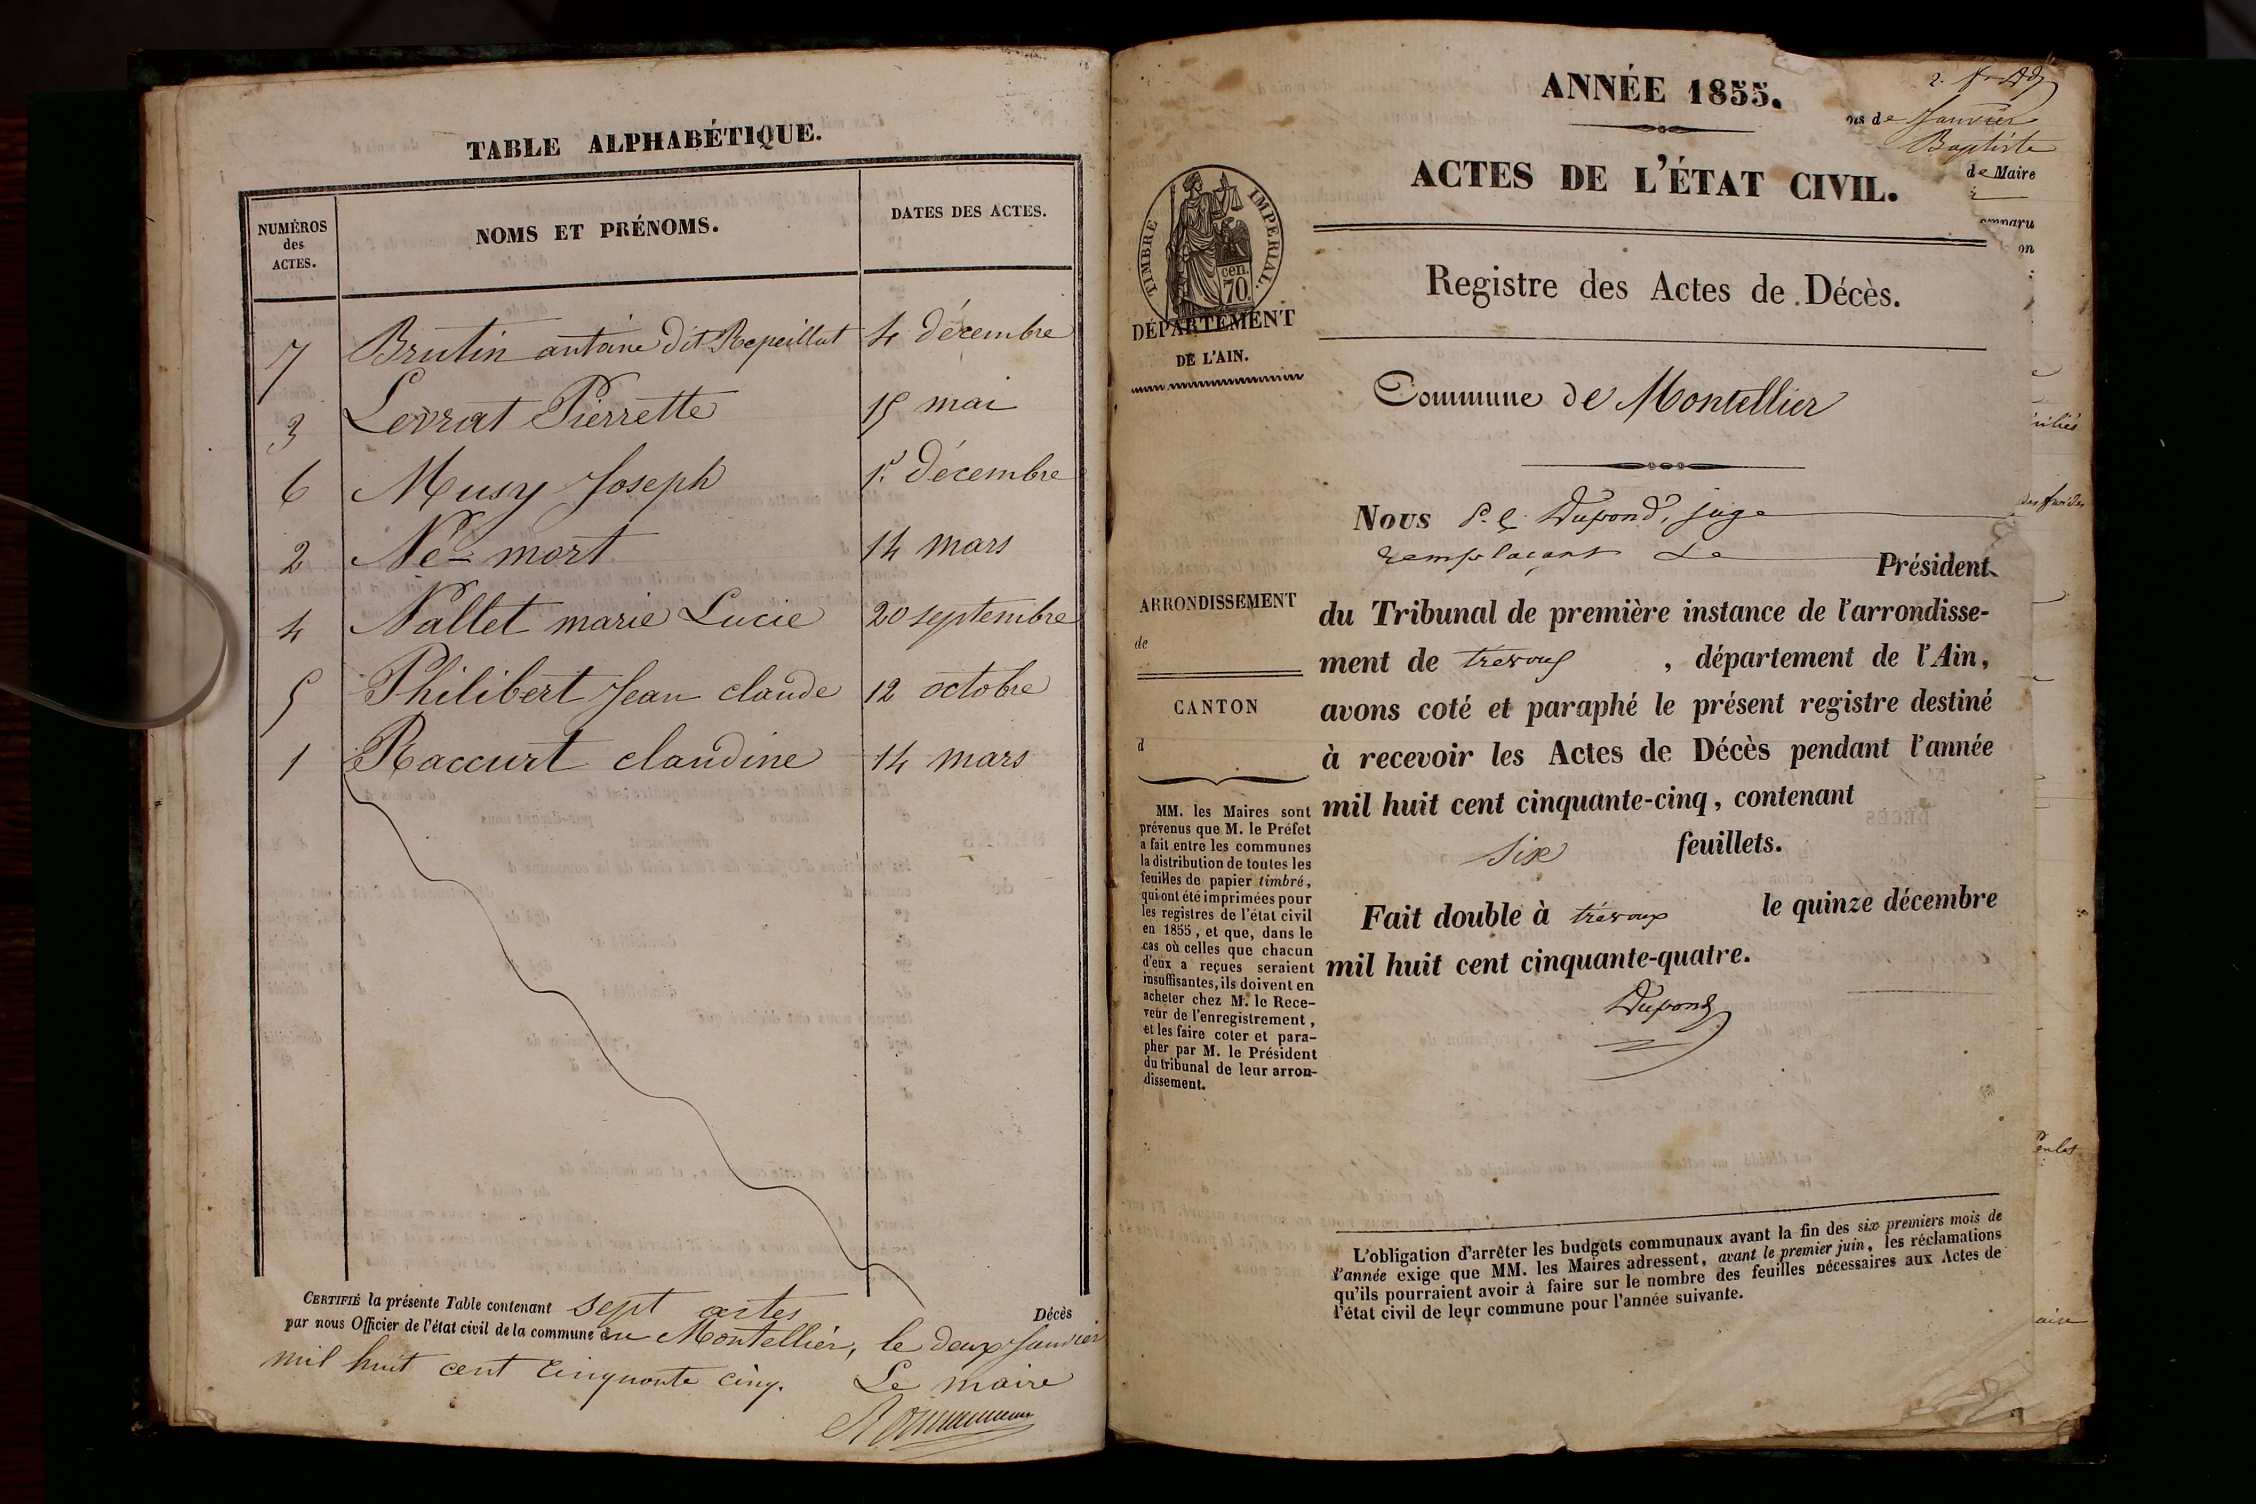 TABLE ALPHABÉTIQUE.
NUMÉROS
des
ACTES.
NOMS ET PRÉNOMS.
DATES DES ACTES.
7 Brutin antoine dit Repeillat 4 décembre
3 Levrat Pierrette 15 mai
6 Musy Joseph 1er décembre
2 Né-mort 14 mars
4 Nallet marie Lucie 20 septembre
5 Philibert Jean claude 12 octobre
1 Raccurt claudine 14 mars
CERTIFIÉ la présente Table contenant sept actes Décès
par nous Officier de l'état civil de la commune du Montellier, le deux Janvier
mil huit cent cinquante cinq. Le maire
ANNÉE 1855.
ACTES DE L'ÉTAT CIVIL.
TIMBRE IMPÉRIAL.
cen.
70
DÉPARTEMENT
DE L'AIN.
Registre des Actes de Décès.
Commune de Montellier
Nous P. E. Dupond, juge
remplaçant Le Président
du Tribunal de première instance de l'arrondisse-
ment de trevoux, département de l'Ain,
avons coté et paraphé le présent registre destiné
à recevoir les Actes de Décès pendant l'année
mil huit cent cinquante-cinq, contenant
six feuillets.
Fait double à trévoux le quinze décembre
mil huit cent cinquante-quatre.
Dupond
ARRONDISSEMENT
de
CANTON
d
MM. les Maires sont
prévenus que M. le Préfet
a fait entre les communes
la distribution de toutes les
feuilles de papier timbré,
qui ont été imprimées pour
les registres de l'état civil
en 1855, et que, dans le
cas où celles que chacun
d'eux a reçues seraient
insuffisantes, ils doivent en
acheter chez M. le Rece-
veur de l'enregistrement,
et les faire coter et para-
pher par M. le Président
du tribunal de leur arron-
dissement.
L'obligation d'arrêter les budgets communaux avant la fin des six premiers mois de
l'année exige que MM. les Maires adressent, avant le premier juin, les réclamations
qu'ils pourraient avoir à faire sur le nombre des feuilles nécessaires aux Actes de
l'état civil de leur commune pour l'année suivante.
ois de Janvier
Baptiste
de Maire
omparu
on